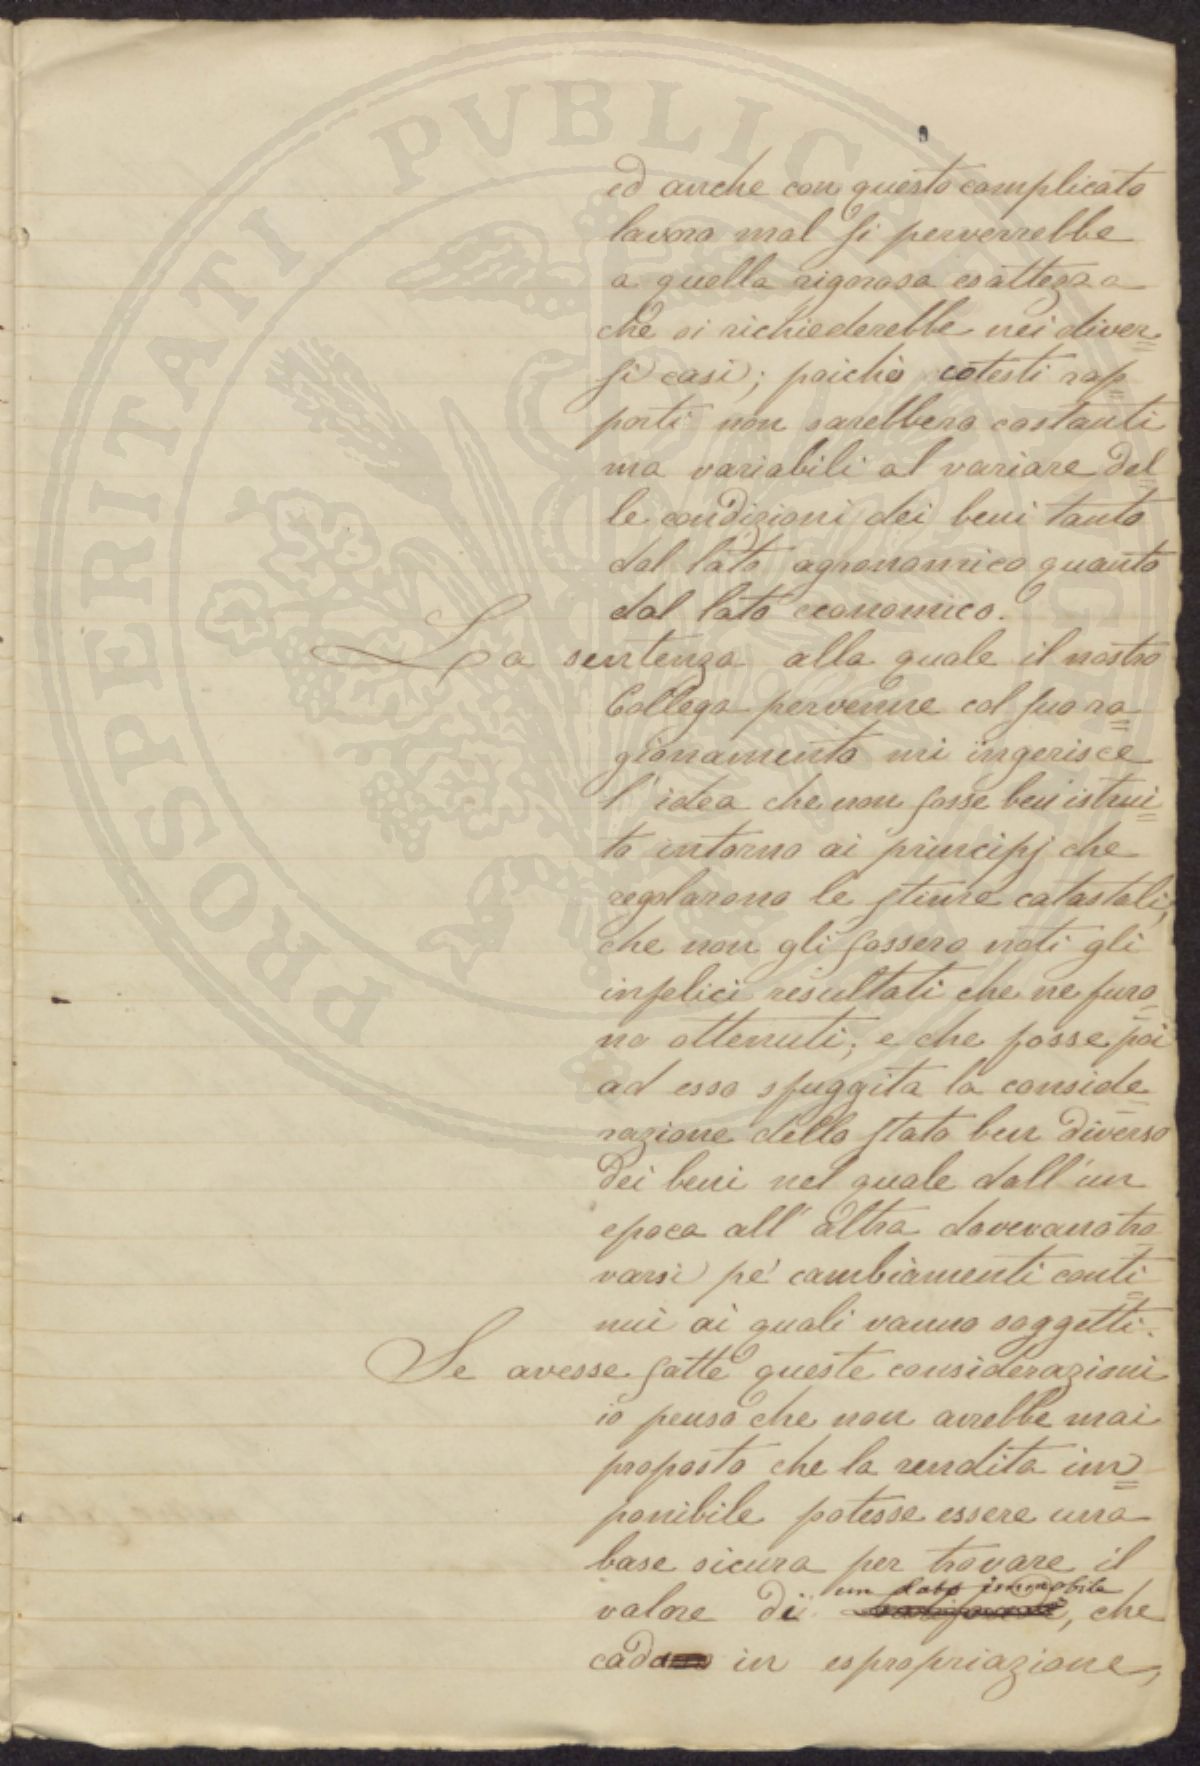 PROSPERITATI PVBLICAE AVGENDAE
ed anche con questo complicato
lavoro mal si perverrebbe
a quella rigorosa esattezza
che si richiederebbe nei diver=
si casi; poichè cotesti rap=
porti non sarebbero costanti
ma variabili al variare del=
le condizioni dei beni tanto
dal lato agronomico quanto
dal lato economico.
La sentenza alla quale il nostro
Collega pervenne col suo ra=
gionamento mi ingerisce
l'idea che non fosse ben istrui=
to intorno ai principj che
regolarono le stime catastali;
che non gli fossero noti gli
infelici risultati che ne furo=
no ottenuti; e che fosse poi
ad esso sfuggita la conside=
razione dello stato ben diverso
dei beni nel quale dall'un
epoca all'altra dovevano tro
varsi pe' cambiamenti conti=
nui ai quali vanno soggetti.
Se avesse fatte queste considerazioni
io penso che non avrebbe mai
proposto che la rendita im=
ponibile potesse essere una
base sicura per trovare il
un dato immobile
valore di , che
cada in espropriazione,